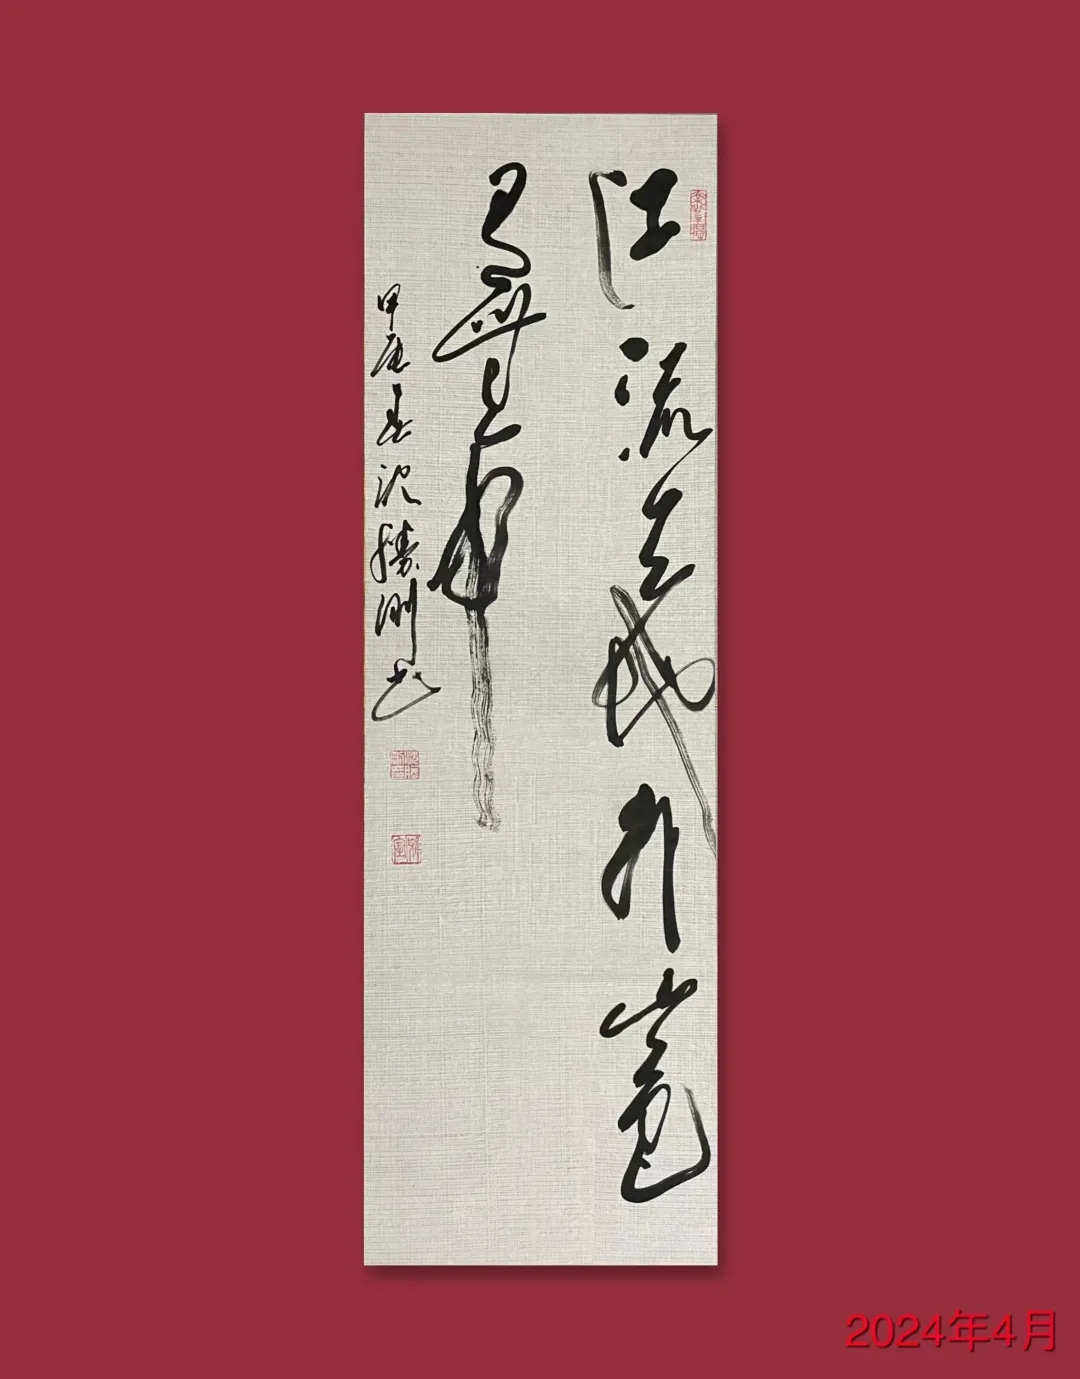 江流天地外山色
有無中
甲辰春沈勝刚书
2024年4月